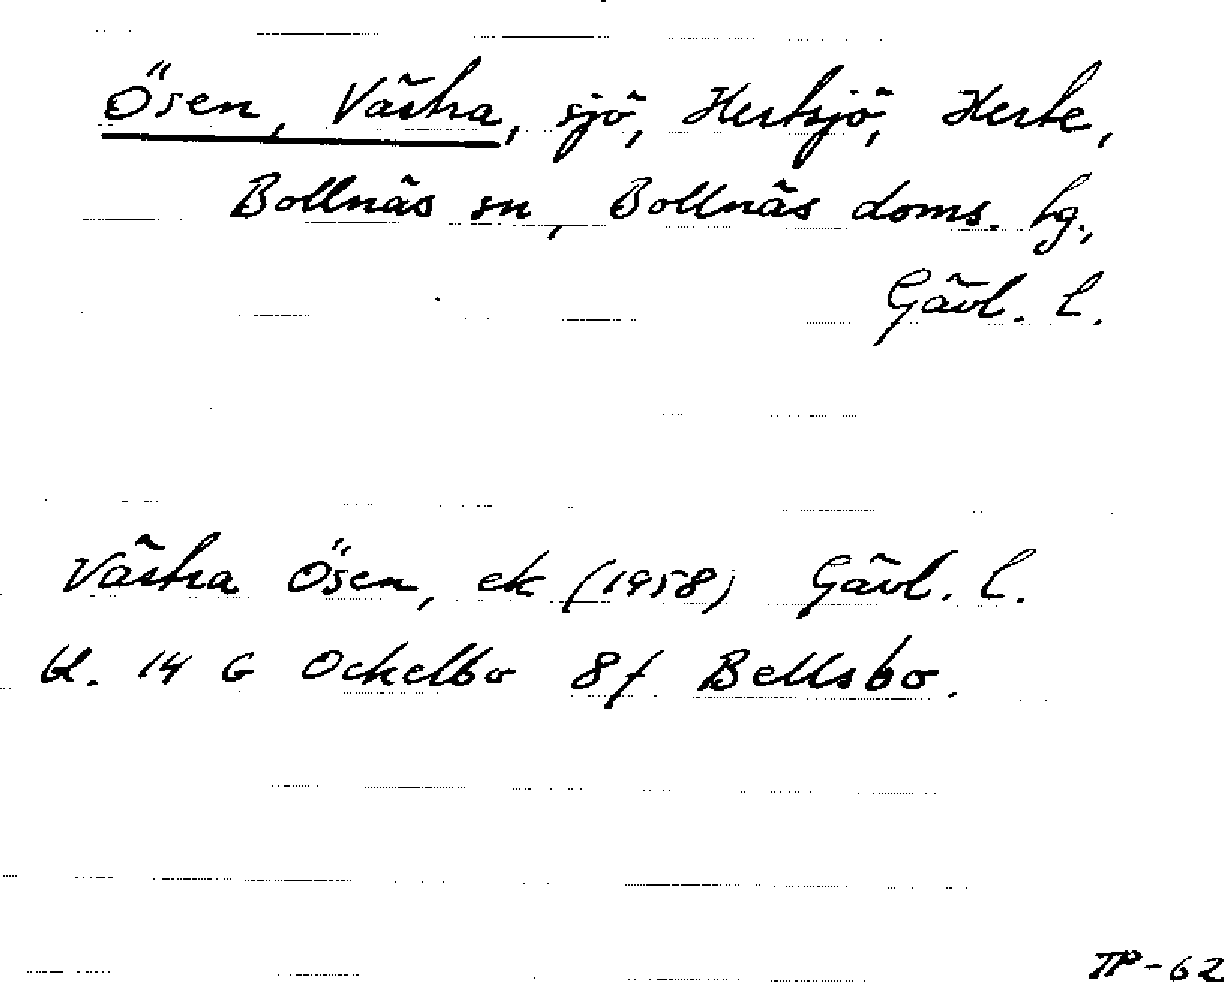 Ösen, Västra, sjö, Hertsjö, Herte,
Bollnäs sn, Bollnäs doms. hg.,
Gävl. l.
Västra Ösen, ek (1958) Gävl. l.
bl. 14 G Ockelbo 8f Bellsbo.
TP-62